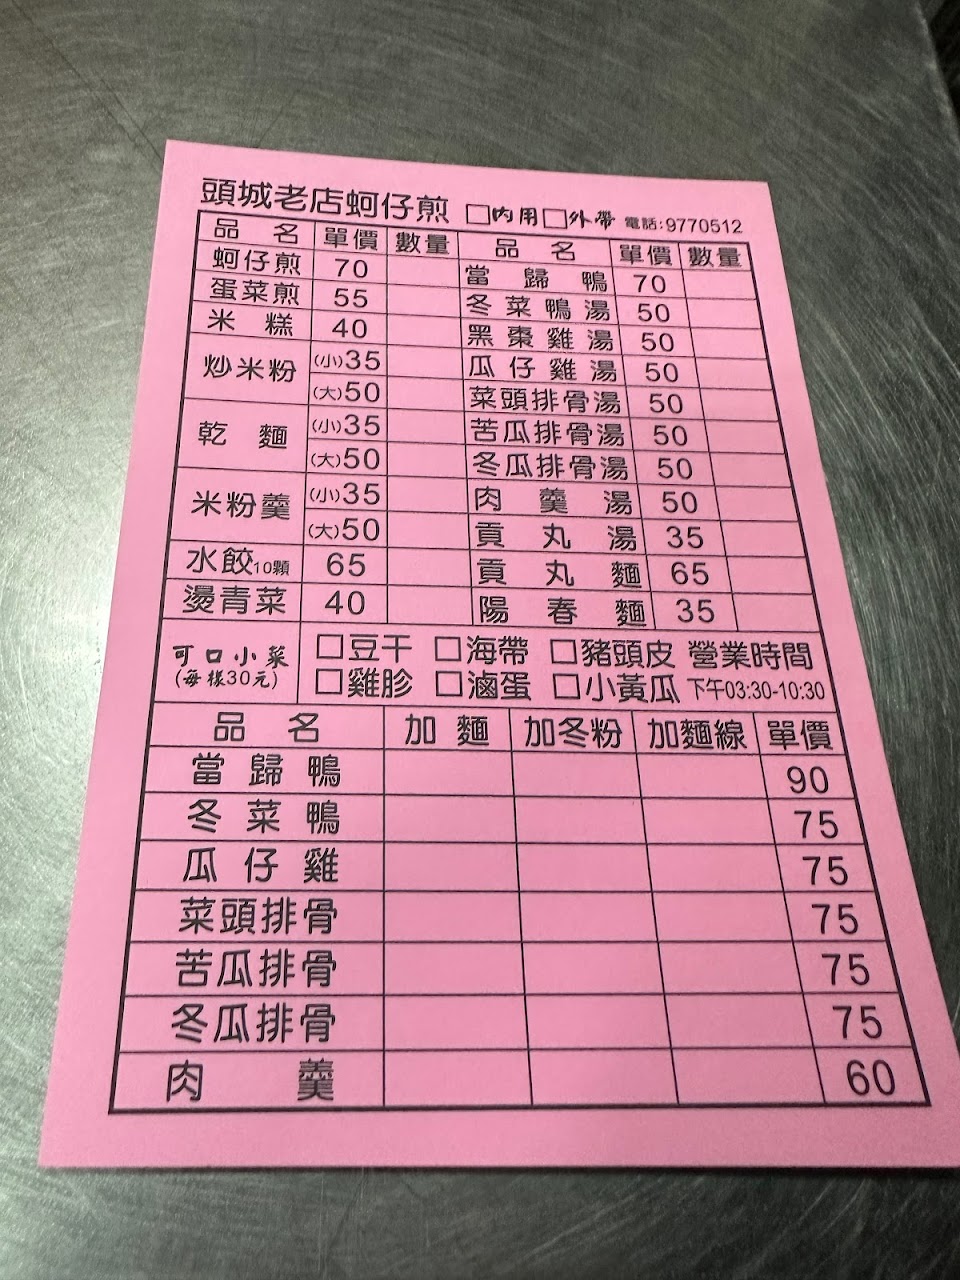 頭城老店蚵仔煎 □內用□外帶 電話:9770512
品名 單價 數量 品名 單價 數量
蚵仔煎 70 當歸鴨 70
蛋菜煎 55 冬菜鴨湯 50
米糕 40 黑棗雞湯 50
炒米粉 (小)35 瓜仔雞湯 50
(大)50 菜頭排骨湯 50
乾麵 (小)35 苦瓜排骨湯 50
(大)50 冬瓜排骨湯 50
米粉羹 (小)35 肉羹湯 50
(大)50 貢丸湯 35
水餃10顆 65 貢丸麵 65
燙青菜 40 陽春麵 35
可口小菜 □豆干 □海帶 □豬頭皮 營業時間
(每樣30元) □雞胗 □滷蛋 □小黃瓜 下午03:30-10:30
品名 加麵 加冬粉 加麵線 單價
當歸鴨 90
冬菜鴨 75
瓜仔雞 75
菜頭排骨 75
苦瓜排骨 75
冬瓜排骨 75
肉羹 60